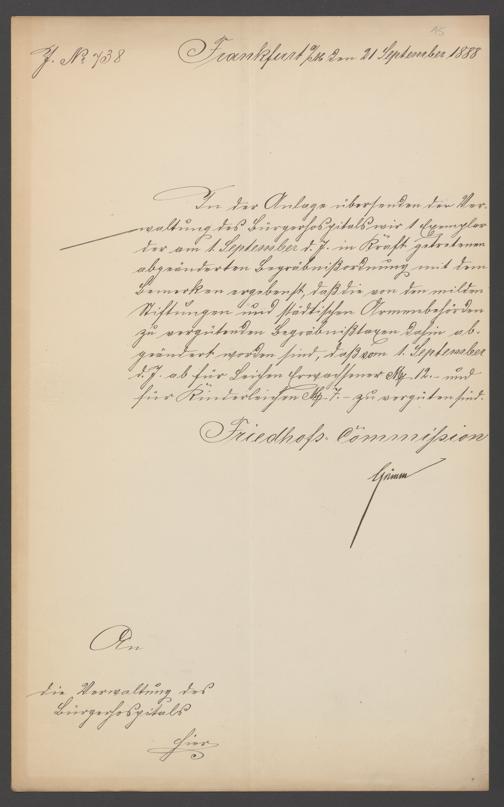 15
J. № 738
Frankfurt a/M den 21 September 1888
In der Anlage übersenden der Ver-
waltung des Bürgerhospitals wir 1 Exemplar
der am 1. September d. J. in Kraft getretenen
abgeänderten Begräbnißordnung mit dem
Bemerken ergebenst, daß die von den milden
Stiftungen und städtischen Armenbehörden
zu vergütenden Begräbnißtaxen dahin ab-
geändert worden sind, daß vom 1. September
d. J. ab für Leichen Erwachsener M. 12.- und
für Kinderleichen M. 7.- zu vergüten sind.
Friedhofs-Commission
An
die Verwaltung des
Bürgerhospitals
hier